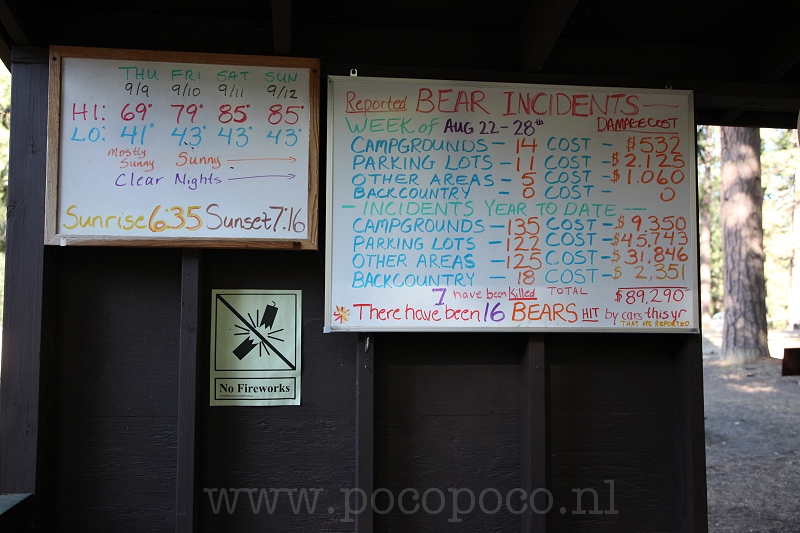 THU FRI SAT SUN
9/9 9/10 9/11 9/12
HI: 69° 79° 85° 85°
LO: 41° 43° 43° 43°
Mostly Sunny Sunny
Clear Nights
Sunrise 6:35 Sunset 7:16
Reported BEAR INCIDENTS
WEEK of AUG 22-28th DAMAGE COST
CAMPGROUNDS - 14 COST - $532
PARKING LOTS - 11 COST - $2,125
OTHER AREAS - 5 COST - $1,060
BACKCOUNTRY - 0 COST - 0
- INCIDENTS YEAR TO DATE -
CAMPGROUNDS - 135 COST - $9,350
PARKING LOTS - 122 COST - $45,743
OTHER AREAS - 125 COST - $31,846
BACKCOUNTRY - 18 COST - $2,351
7 have been Killed TOTAL $89,290
There have been 16 BEARS HIT by cars this yr
THAT ARE REPORTED
No Fireworks
www.pocopoco.nl